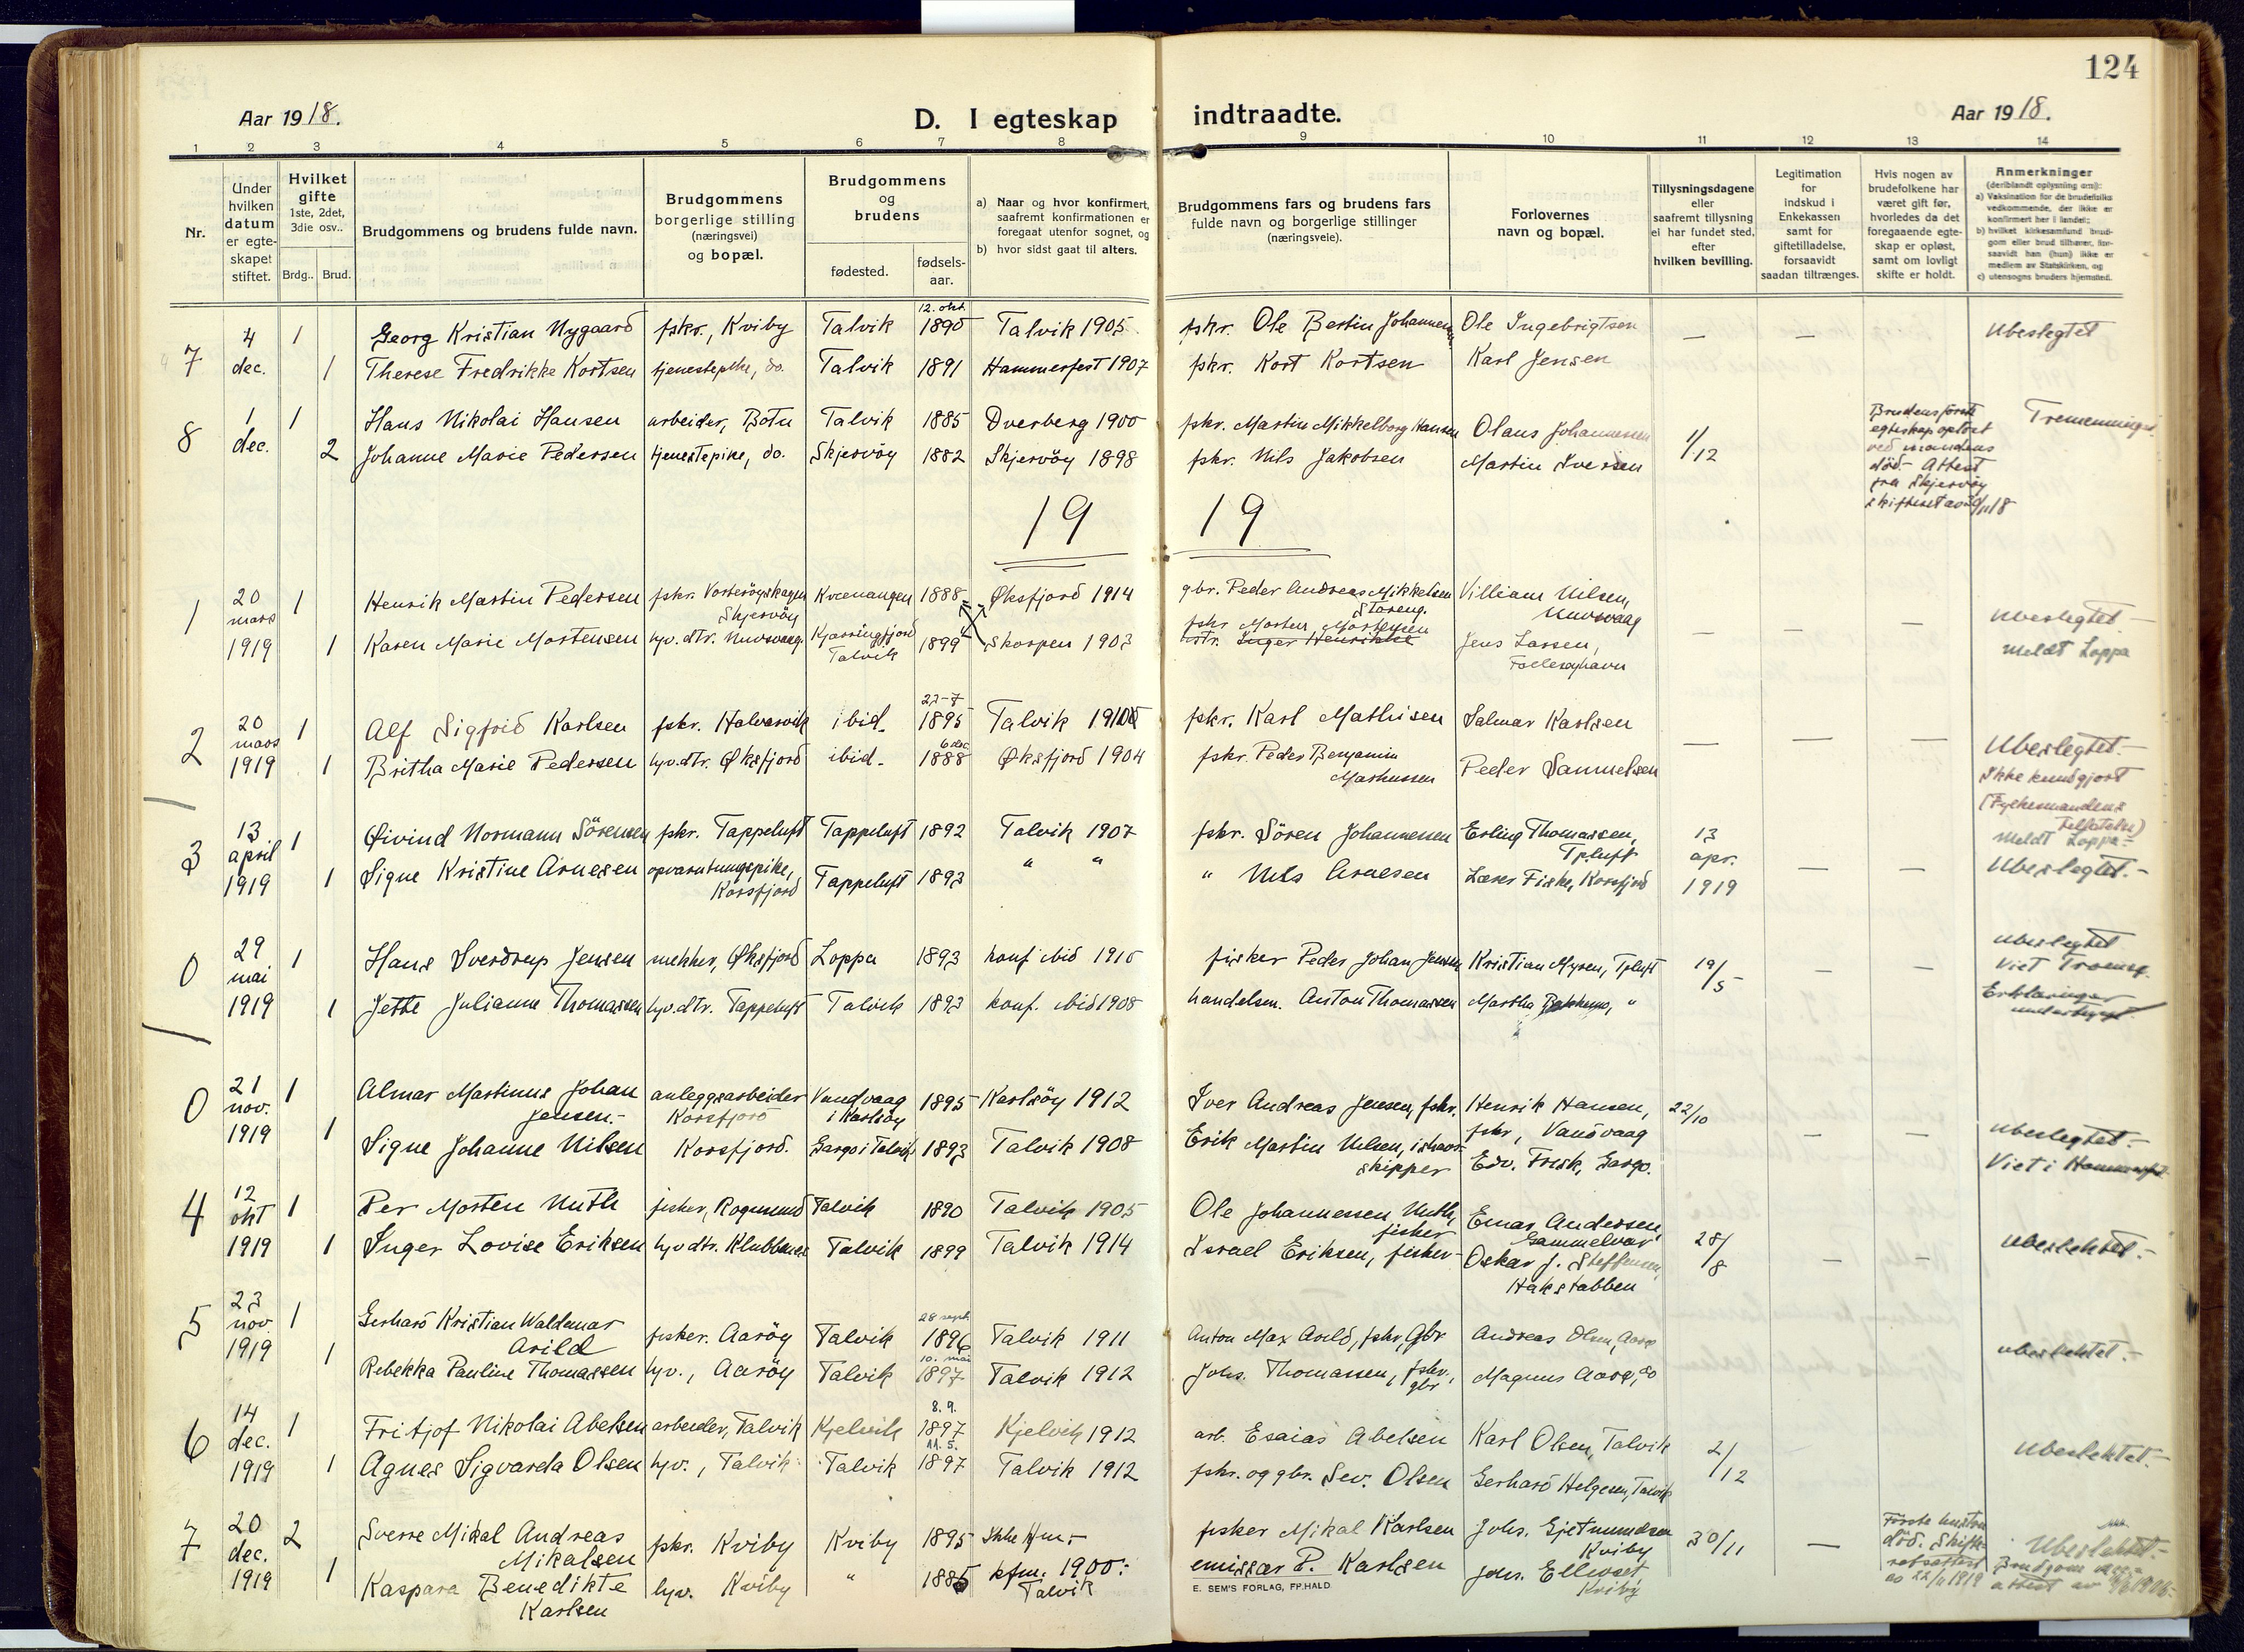 124
Aar 1918.
D. I egteskap indtraadte.
Aar 1918.
1 2 3 4 5 6 7 8 9 10 11 12 13 14
Nr.
Under hvilken datum er egteskapet stiftet.
Hvilket gifte 1ste, 2det, 3die osv..
Brdg.. Brud.
Brudgommens og brudens fulde navn.
Brudgommens borgerlige stilling (næringsvei) og bopæl.
Brudgommens og brudens
fødested. fødsels-aar.
a) Naar og hvor konfirmert, saafremt konfirmationen er foregaat utenfor sognet, og
b) hvor sidst gaat til alters.
Brudgommens fars og brudens fars fulde navn og borgerlige stillinger (næringsveie).
Forlovernes navn og bopæl.
Tillysningsdagene eller saafremt tillysning ei har fundet sted, efter hvilken bevilling.
Legitimation for indskud i Enkekassen samt for giftetilladelse, forsaavidt saadan tiltrænges.
Hvis nogen av brudefolkene har været gift før, hvorledes da det foregaaende egteskap er opløst, samt om lovligt skifte er holdt.
Anmerkninger
(deriblandt oplysning om):
a) Vaksination for de brudefolks vedkommende, der ikke er konfirmert her i landet;
b) hvilket kirkesamfund brudgom eller brud tilhører, forsaavidt han (hun) ikke er medlem av Statskirken, og
c) utensogns bruders hjemsted.
7 4 dec. 1 Georg Kristian Nygaard fskr., Kviby Talvik 12. okt. 1890 Talvik 1905 fskr. Ole Bertin Johannesen Ole Ingebrigtsen — — Ubeslegtet
1 Therese Fredrikke Kortsen tjenestepike, do. Talvik 1891 Hammerfest 1907 fskr. Kort Kortsen Karl Jensen
8 1 dec. 1 Hans Nikolai Hansen arbeider, Botn Talvik 1885 Dverberg 1900 fskr. Martin Mikkelborg Hansen Olaus Johannesen 1/12 Brudens første egteskap opløst ved mandens død.- Attest fra Skjervöy Tremenninger
2 Johanne Marie Pedersen tjenestepike, do. Skjervöy 1882 Skjervöy 1898 fskr. Nils Jakobsen Martin Iversen
19 19
1 20 mars 1919 1 Henrik Martin Pedersen fskr. Skjervöy Kvænangen 1888 Øksfjord 1914 gbr. Peder Andreas Mikkelsen Storeng. Villiam Nilsen, Nuvsvaag — — — Ubeslegtet
1 Karen Marie Mortensen hjv. dtr. Nuvsvaag Talvik 1899 Skorpen 1903 fskr Morten Mortensen Inger Henrikke Jens Larsen, meldt Loppa
2 20 mars 1919 1 Alf Sigfrid Karlsen fskr. Halvarvik ibid. 22-7 1895 Talvik 1910 fskr. Karl Mathisen Salmar Karlsen — — — Ubeslegtet.-
1 Britha Marie Pedersen hjv.dtr. Øksfjord ibid. 6 dec 1888 Øksfjord 1904 fskr. Peder Benjamin Markussen Peder Samuelsen Ikke kundgjort (Fylkesmandens Meldt Loppa
3 13 april 1919 1 Øivind Normann Sörensen fskr. Tappeluft Tappeluft 1892 Talvik 1907 fskr. Sören Johannessen Erling Thomassen, Tpluft 13 apr. 1919 — — Ubeslegtet.-
1 Signe Kristine Arnesen opvartningspike, Korsfjord Tappeluft 1893 " " " Nils Arnesen Fiske, Korsfjord
0 29 mai 1919 1 Hans Sverdrup Jensen snekker, Øksfjord Loppa 1893 konf ibid 1910 fisker Peder Johan Jensen Kristian Myren, Tpluft 19/5 — — Ubeslegtet Viet
1 Jette Julianne Thomassen hjv.dtr. Tappeluft Talvik 1893 konf. ibid 1908 handelsm. Anton Thomassen Martha Bakkemo, " Erklæringer
0 21 nov. 1919 1 Almar Martinus Johan Jensen.- anleggsarbeider Korsfjord i Karlsöy 1895 Karlsöy 1912 Iver Andreas Jensen, fskr. Henrik Hansen, fskr, Vandvaag 22/10 — — Ubeslegtet.-
1 Signe Johanne Nilsen Korsfjord. Gargo i Talvik 1893 Talvik 1908 Erik Martin Nilsen, skipper Edv. Frisk, Gargo. Viet i Hammerfest
4 12 okt 1919 1 Per Morten Muth fisker, Rognsund Talvik 1890 Talvik 1905 Ole Johannessen Muth, fisker Einar Andersen, 28/8 — — Ubeslektet.-
1 Inger Lovise Eriksen hjv dtr. Klubbnes Talvik 1899 Talvik 1914 Israel Eriksen, fisker Oskar J. Steffensen, Hakstabben
5 23 nov 1919 1 Gerhard Kristian Waldemar Arild fisker. Aaröy Talvik 28 sept. 1896 Talvik 1911 Anton Max Arild, fskr, Gbr Andreas Olsen, Ubeslektet.-
1 Rebekka Pauline Thomassen hjv., Aaröy Talvik 10. mai 1897 Talvik 1912 Johs. Thomassen, fskr., gbr Magnus
6 14 dec. 1919 1 Fritjof Nikolai Abelsen arbeider, Talvik Kjelvik 8. 9. 1897 Kjelvik 1912 arb. Esaias Abelsen Karl Olsen, Talvik 2/12 Ubeslektet.-
1 Agnes Sigvarda Olsen hjv., Talvik Talvik 11. 5. 1897 Talvik 1912 fskr. og gbr. Sev. Olsen Gerhard Helgesen, Talvik
7 20 dec. 1919 2 Sverre Mikal Andreas Mikalsen fskr. Kviby Kviby 1895 Ikke kfm.- fisker Mikal Karlsen Johs. Gjetmundsen Kviby 30/11 — Første hustru død. Skifteretsattest av 22/11 1919 Ubeslektet.-
1 Kaspara Benedikte Karlsen hjv. Kviby " 1885 kfm. 1900: Talvik emissær P. Karlsen Johs. Kviby Brudgom attest av
E. SEM'S FORLAG, FP.HALD